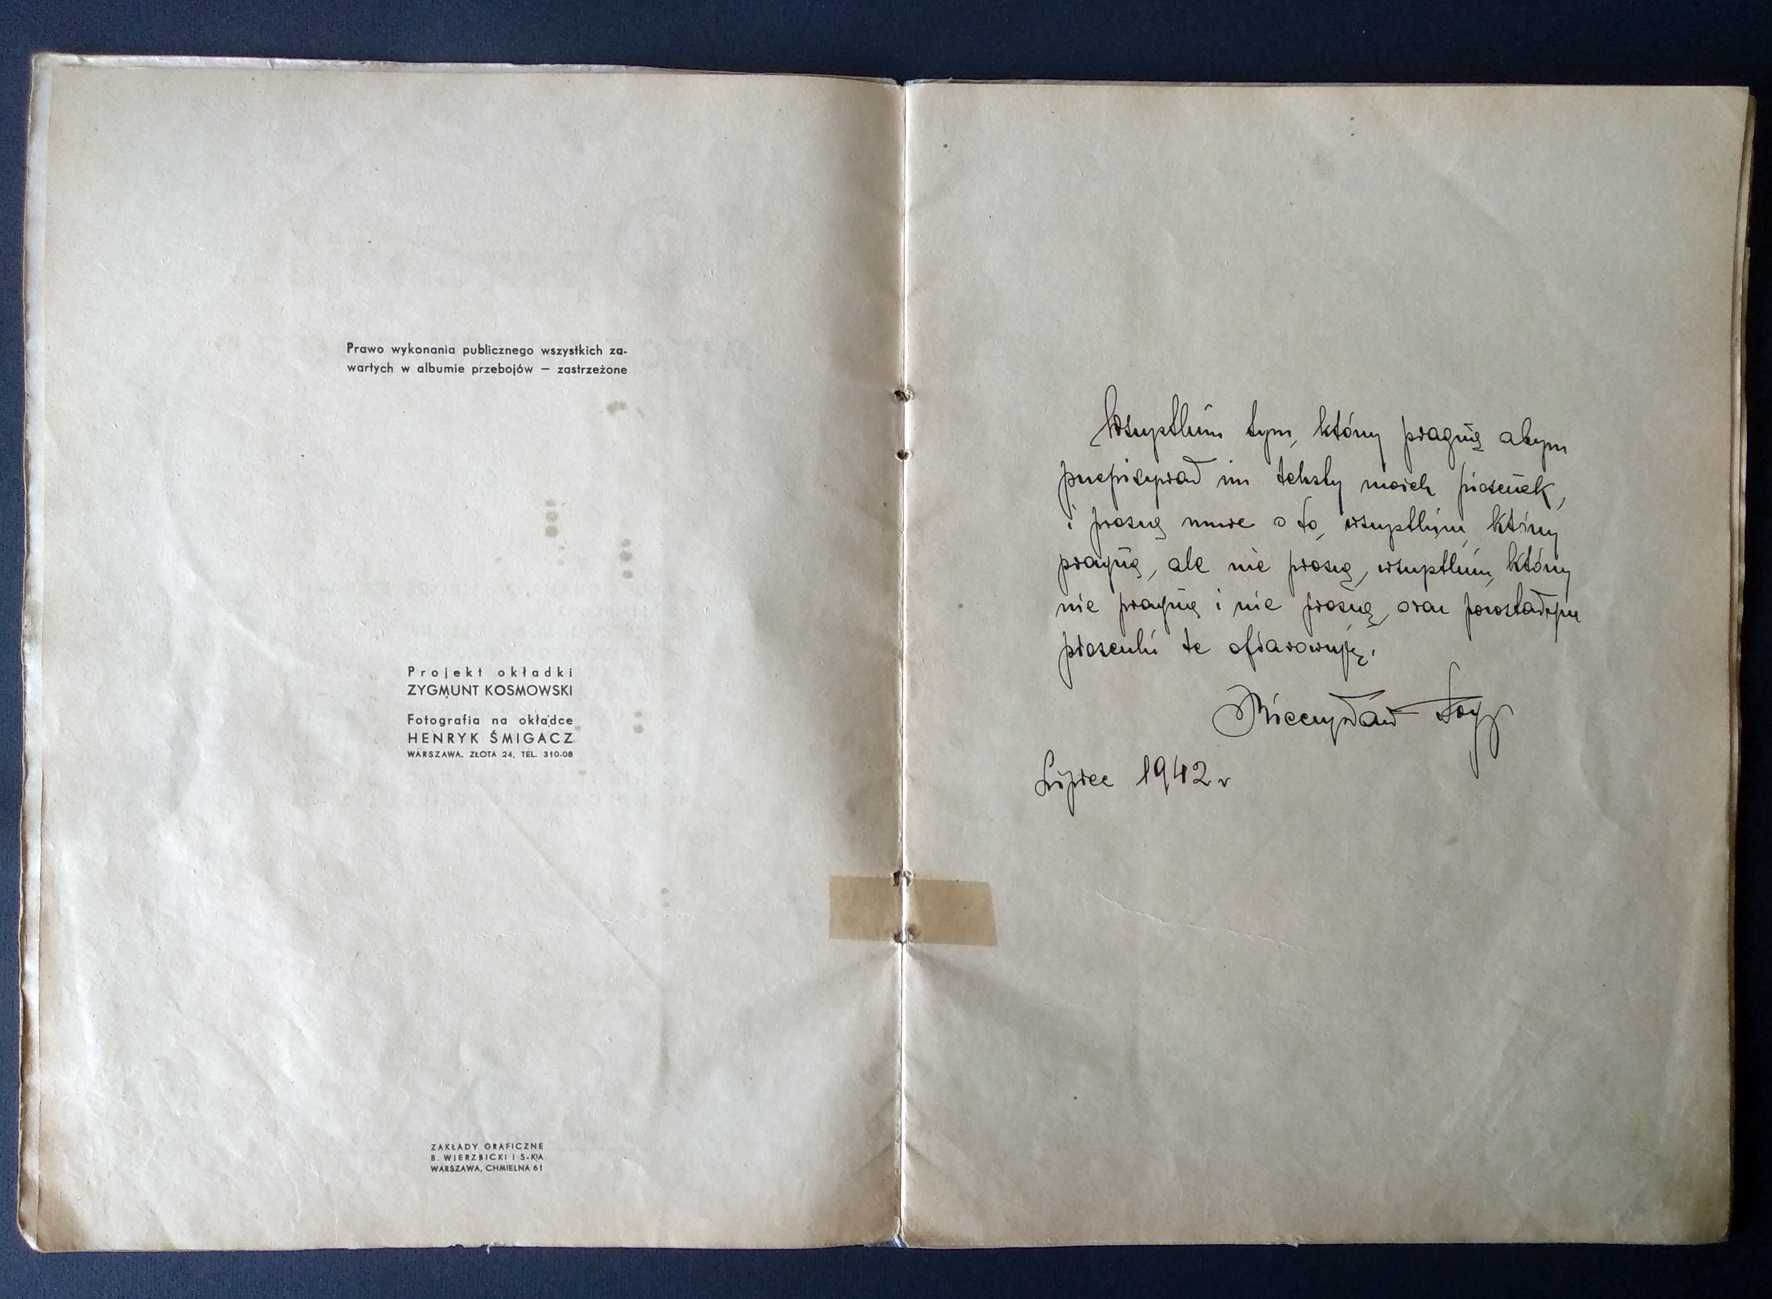 Prawo wykonania publicznego wszystkich za-
wartych w albumie przebojów — zastrzeżone
Projekt okładki
ZYGMUNT KOSMOWSKI
Fotografia na okładce
HENRYK ŚMIGACZ
WARSZAWA, ZŁOTA 24, TEL. 310-08
ZAKŁADY GRAFICZNE
B. WIERZBICKI I S-KA
WARSZAWA, CHMIELNA 61
Wszystkim tym, którzy pragną abym
przepisywał im teksty moich piosenek,
i proszą mnie o to, wszystkim, którzy
pragną, ale nie proszą, wszystkim, którzy
nie pragną i nie proszą, oraz pozostałym
piosenki te ofiarowuję.
Mieczysław Fogg
Lipiec 1942 r